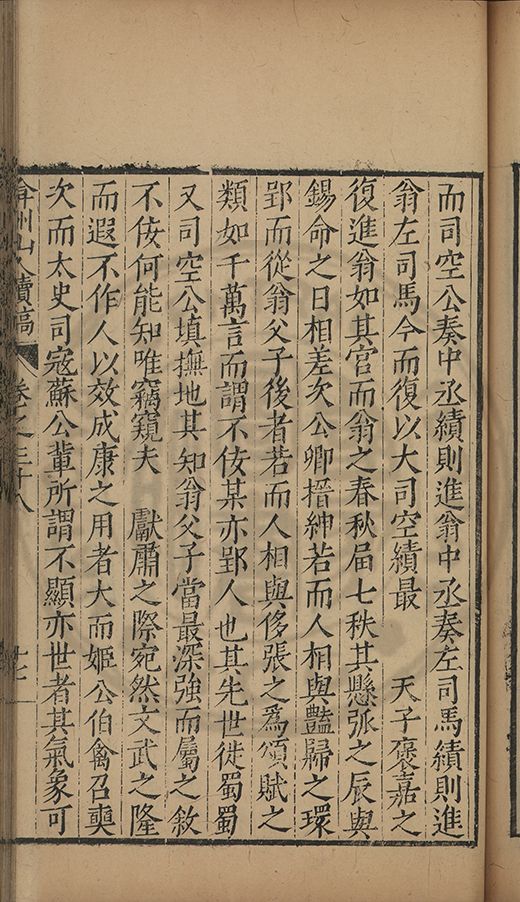 而司空公奏中丞績則進翁中丞奏左司馬績則進
翁左司馬今而復以大司空績最　天子褒嘉之
復進翁如其官而翁之春秋屆七秩其懸弧之辰與
錫命之日相差次公卿搢紳若而人相與豔歸之環
郢而從翁父子後者若而人相與侈張之爲頌賦之
類如千萬言而謂不佞某亦郢人也其先世徙蜀蜀
又司空公填撫地其知翁父子當最深強而屬之敘
不佞何能知唯竊窺夫　獻肅之際宛然文武之隆
而遐不作人以效成康之用者大而姬公伯禽召奭
次而太史司寇蘇公輩所謂不顯亦世者其氣象可
弇州山人續稿
卷之三十八
廿七